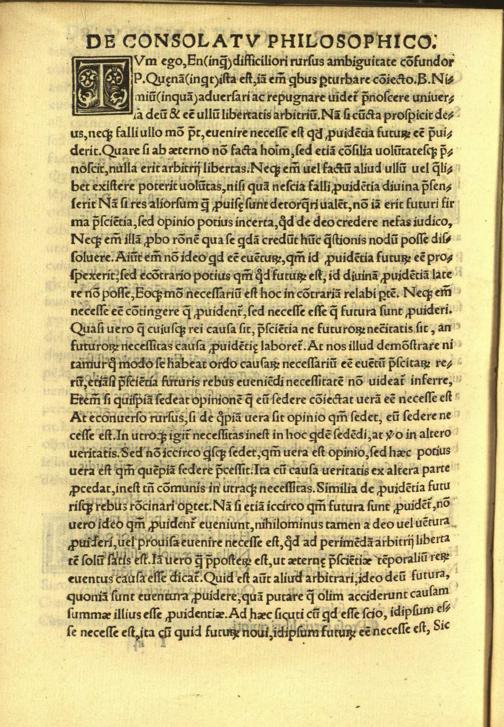 DE CONSOLATV PHILOSOPHICO.
TVm ego, En(inq̃)difficiliori rursus ambiguitate cõfundor
P. Quẽnã(inq̃t)ista est, iã em̃ q̃bus ꝑturbare cõiecto. B. Ni⸗
miũ(inquã)aduersari ac repugnare uidet᷑ p̃noscere uniuer⸗
ia deũ & eẽ ullũ libertatis arbitriũ. Nã si cũcta prospicit de⸗
us, neqꝫ falli ullo mõ p̃t, euenire necesse est qd̃ ꝓuidẽtia futurꝝ eẽ p̃ui⸗
derit. Quare si ab æterno nõ facta hoĩm, sed etiã cõsilia uolũtatesqꝫ p̃⸗
nõscit, nulla erit arbitrij libertas. Neqꝫ em̃ uel factũ aliud ullũ uel q̃li⸗
bet existere poterit uolũtas, nisi quã nescia falli ꝓuidẽtia diuina p̃sen⸗
serit Nã si res aliorsum q̃ ꝓuisę sunt detorq̃ri ualẽt, nõ iã erit futuri fir
ma p̃sciẽtia, sed opinio potius incerta, q̃d de deo credere nefas iudico,
Neqꝫ em̃ illã ꝓbo rõnẽ qua se q̃dã credũt hũc q̃stionis nodũ posse dis⸗
soluere. Aiũt em̃ nõ ideo qd̃ eẽ euẽturꝝ, qm̃ id ꝓuidẽtia futurꝝ eẽ pro⸗
spexerit; sed ecõtrario potius qm̃ q̃d futurꝝ est, id diuinã ꝓuidẽtiã late
re nõ posse, Eoqꝫ mõ necessariũ est hoc in cõtrariã relabi ꝑtẽ. Neqꝫ em̃
necesse eẽ cõtingere q̃ ꝓuident᷑, sed necesse esse q̃ futura sunt ꝓuideri.
Quasi uero q̃ cuiusqꝫ rei causa sit, p̃sciẽtia ne futuroꝝ nec̃itatis sit, an
futuroꝝ necessitas causa ꝓuidẽtię laboret᷑. At nos illud demõstrare ni
tamur q̃qꝫ modo se habeat ordo causaꝝ necessariũ eẽ euẽtũ p̃scitaꝝ re⸗
rũ, etiãsi p̃sciẽtia futuris rebus eueniẽdi necessitatẽ nõ uideat᷑ inferre,
Etem̃ si quispiã sedeat opinionẽ q̃ eũ sedere cõiectat uerã eẽ necesse est
At econuerso rursus, si de q̃piã uera sit opinio qm̃ sedet, eũ sedere ne
cesse est. In utroqꝫ igit᷑ necessitas inest in hoc q̃dẽ sedẽdi, at ꝟo in altero
ueritatis. Sed nõ iccirco q̃sqꝫ sedet, qm̃ uera est opinio, sed hæc potius
uera est qm̃ quẽpiã sedere p̃cessit. Ita cũ causa ueritatis ex altera parte
ꝓcedat, inest tñ cõmunis in utraqꝫ necessitas. Similia de ꝓuidẽtia futu
risqꝫ rebus rõcinari oꝑtet. Nã si etiã iccirco qm̃ futura sunt ꝓuidet᷑, nõ
uero ideo qm̃ ꝓuident᷑ eueniunt, nihilominus tamen a deo uel uẽtura
ꝓuideri, uel prouisa euenire necesse est, q̃d ad perimẽdã arbitrij liberta
tẽ solũ satis est. Iã uero q̃ p̃posterꝝ est, ut æternę p̃sciẽtiæ tẽporaliũ reꝝ
euentus causa esse dicat᷑. Quid est aũt aliud arbitrari, ideo deũ futura,
quoniã sunt euentura ꝓuidere, quã putare q̃ olim acciderunt causam
summæ illius esse ꝓuidentiæ. Ad hæc sicuti cũ qd̃ esse scio, idipsum es⸗
se necesse est, ita cũ quid futurꝝ noui, idipsum futurꝝ eẽ necesse est, Sic